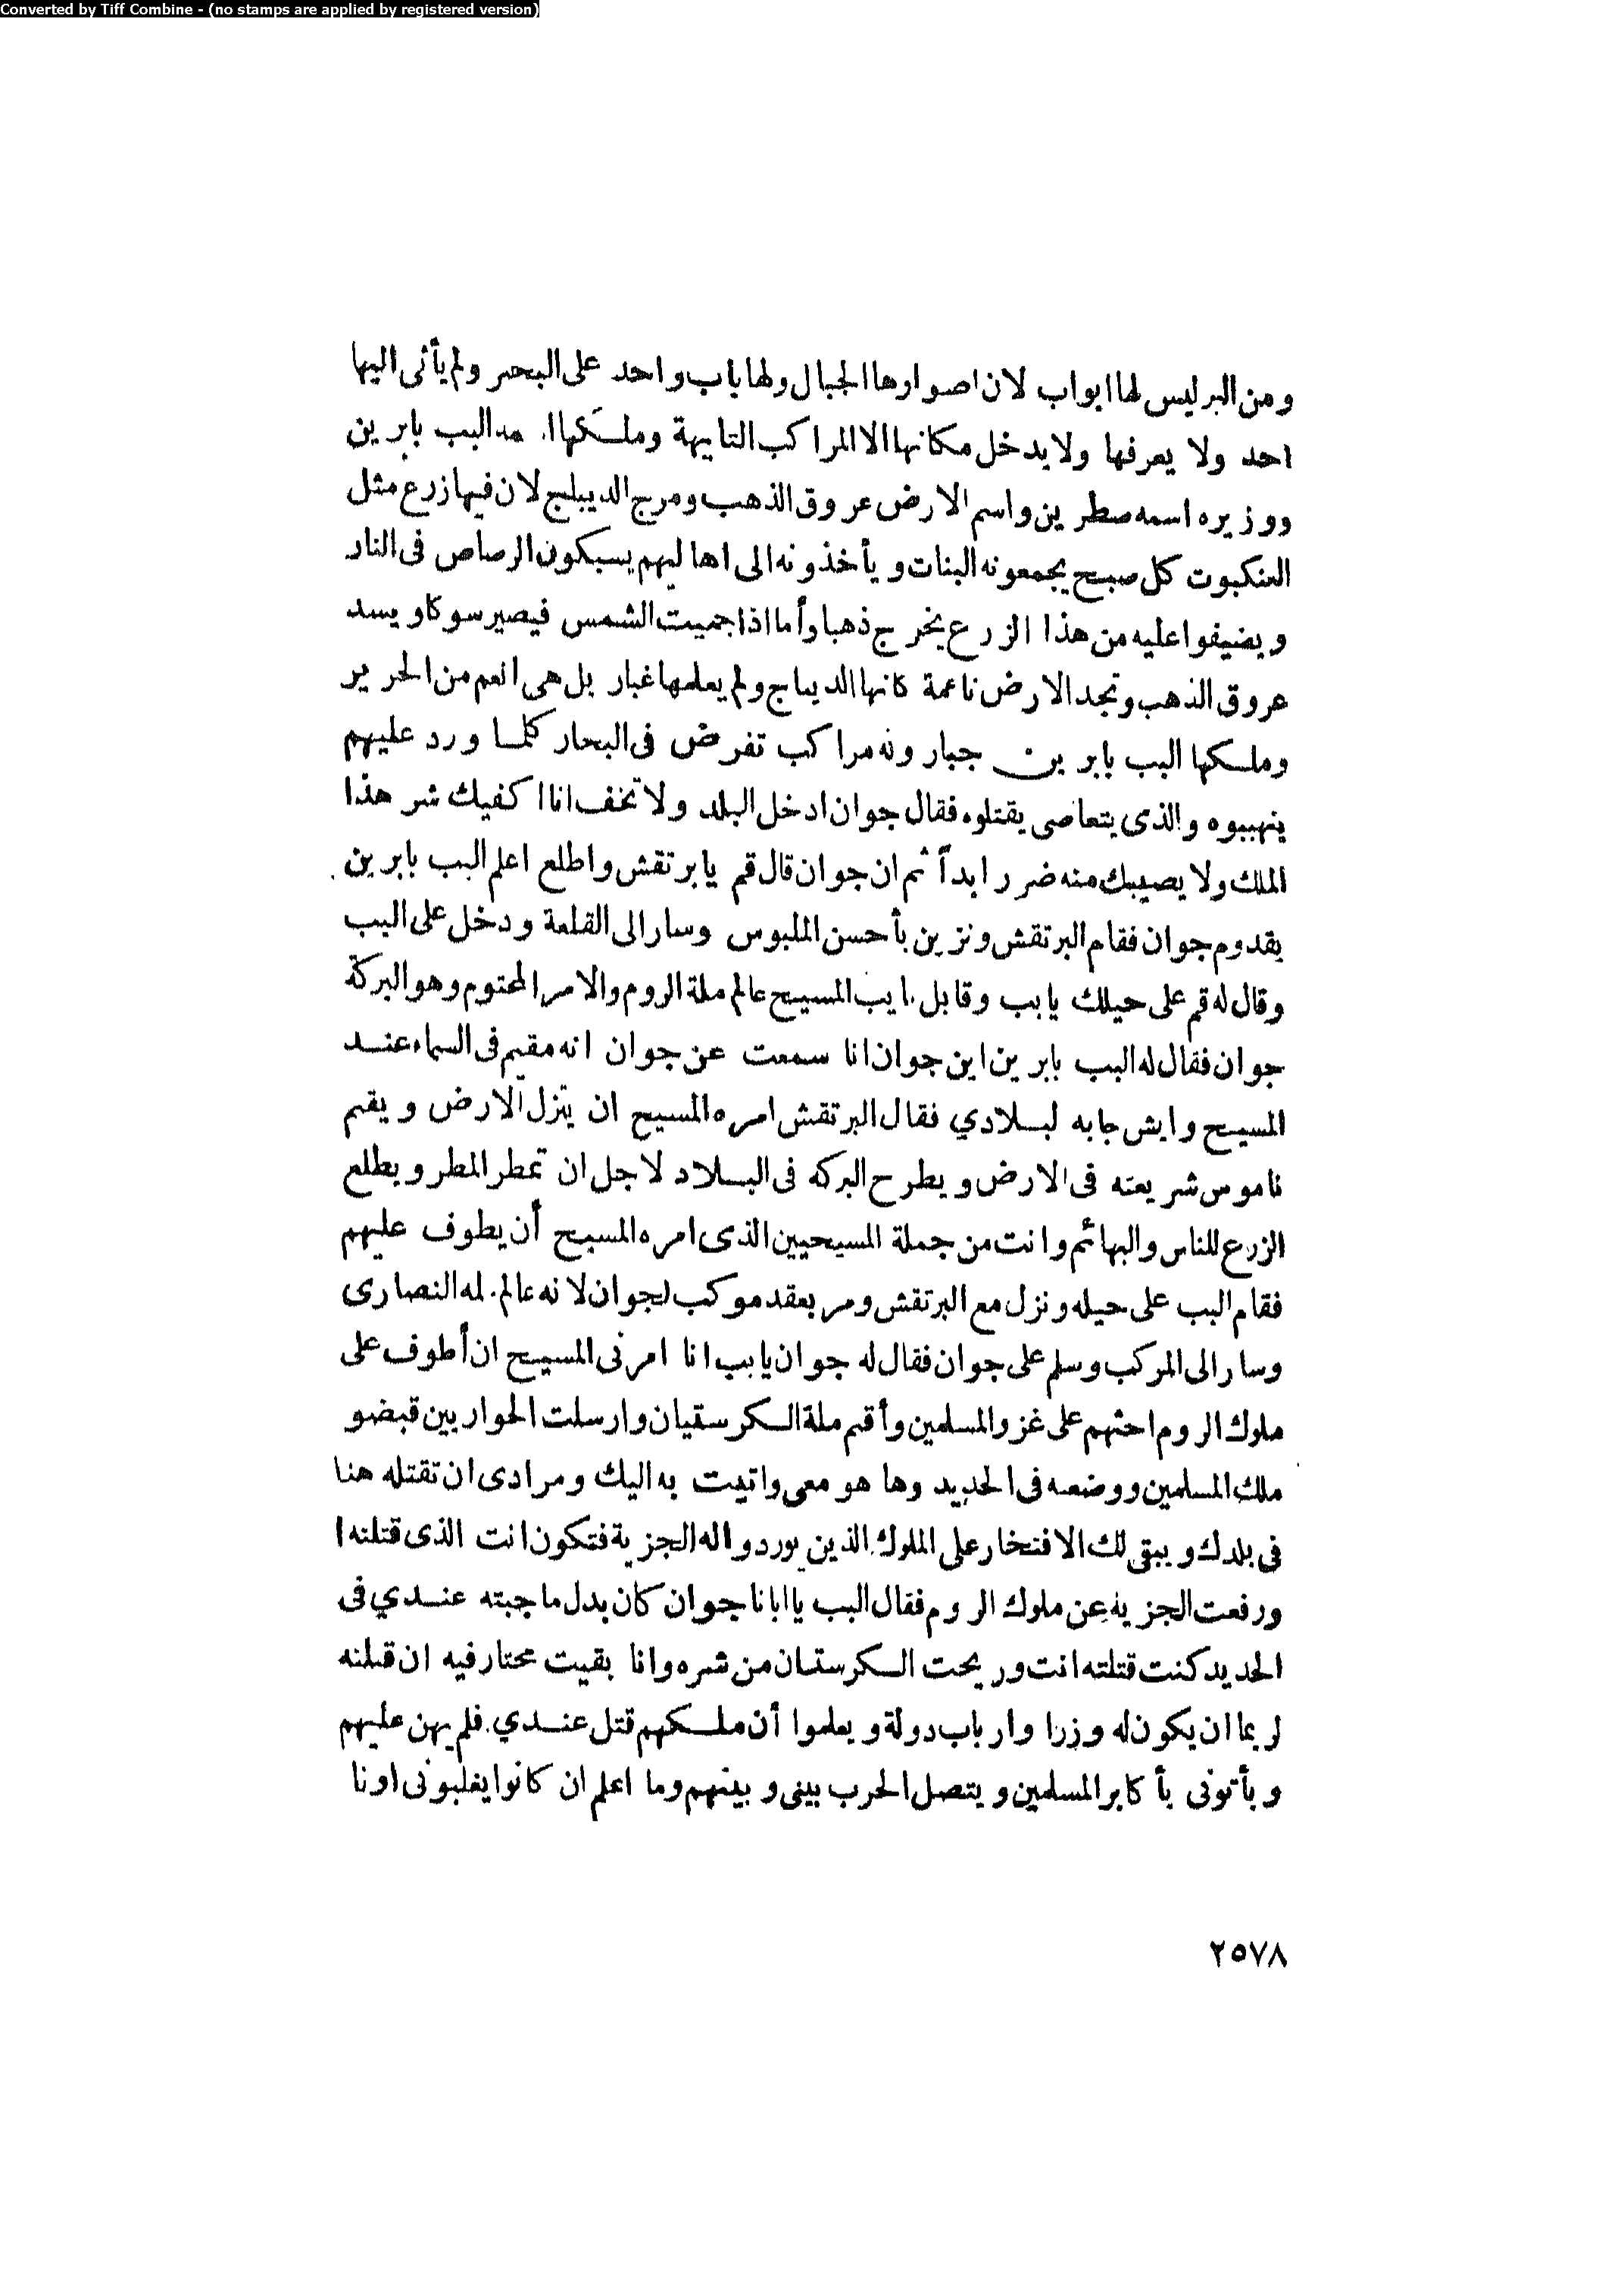 Converted by Tiff Combine - (no stamps are applied by registered version)
ومن البر ليس لها ابواب لان اصوارها الجبال ولها باب واحد على البحر ولم يأتى اليها
احد ولا يعرفها ولا يدخل مكانها الا المراكب التايهة وملكها البب بابرين
ووزيره اسمه صطرين واسم الارض عروق الذهب ومرج الديبلج لان فيها زرع مثل
العنكبوت كل صبح يجمعونه البنات ويأخذونه الى اهاليهم يسبكون الرصاص فى النار
ويضيفوا عليه من هذا الزرع يخرج ذهبا وأما اذا حميت الشمس فيصير سوكا ويسد
عروق الذهب وتجد الارض ناعمة كانها الديباج ولم يعلمها غبار بل هى انعم من الحرير
وملكها البب بابرين جبار ونه مراكب تفرض فى البحار كلما ورد عليهم
ينهببوه والذى يتعاصى يقتلوه فقال جوان ادخل البلد ولا تخف انا اكفيك شر هذا
الملك ولا يصيبك منه ضرر ابداً ثم ان جوان قال قم يا برتقش واطلع اعلم البب بابرين
بقدوم جوان فقام البرتقش ونزين بأحسن الملبوس وسار الى القلعة ودخل على البب
وقال له قم على حيلك يا بب وقابل نايب المسيح عالم ملة الروم والامر المحتوم وهو البركة
جوان فقال له البب بابرين اين جوان انا سمعت عن جوان انه مقيم فى السماء عند
المسيح وايش جابه لبلادي فقال البرتقش امره المسيح ان ينزل الارض ويقم
ناموس شريعته فى الارض ويطرح البركه فى البلاد لاجل ان تمطر المطر ويطلع
الزرع للناس والبهائم وانت من جملة المسيحيين الذى امره المسيح أن يطوف عليهم
فقام البب على حيله ونزل مع البرتقش ومر بعقد موكب لجوان لانه عالم له النصارى
وسار الى المركب وسلم على جوان فقال له جوان يا بب انا امرنى المسيح ان أطوف على
ملوك الروم احثهم على غزو المسلمين وأقم ملة الكرستيان وارسلت الحواريين قبضو
ملك المسلمين ووضعه فى الحديد وها هو معى واتيت به اليك ومرادى ان تقتله هنا
فى بلدك ويبقى لك الافتخار على الملوك الذين يوردوا له الجزية فتكون انت الذى قتلته ا
ورفعت الجزية عن ملوك الروم فقال البب يا ابانا جوان كان بدل ما جبته عندي فى
الحديد كنت قتلته انت وريحت الكرستان من شره وانا بقيت محتار فيه ان قتلته
لربما ان يكون له وزرا وارباب دولة ويعلموا أن ملكهم قتل عندي فلم يهن عليهم
ويأتونى بأكابر المسلمين ويتصل الحرب بينى وبينهم وما اعلم ان كانوا يغلبونى اونا
٢٥٧٨